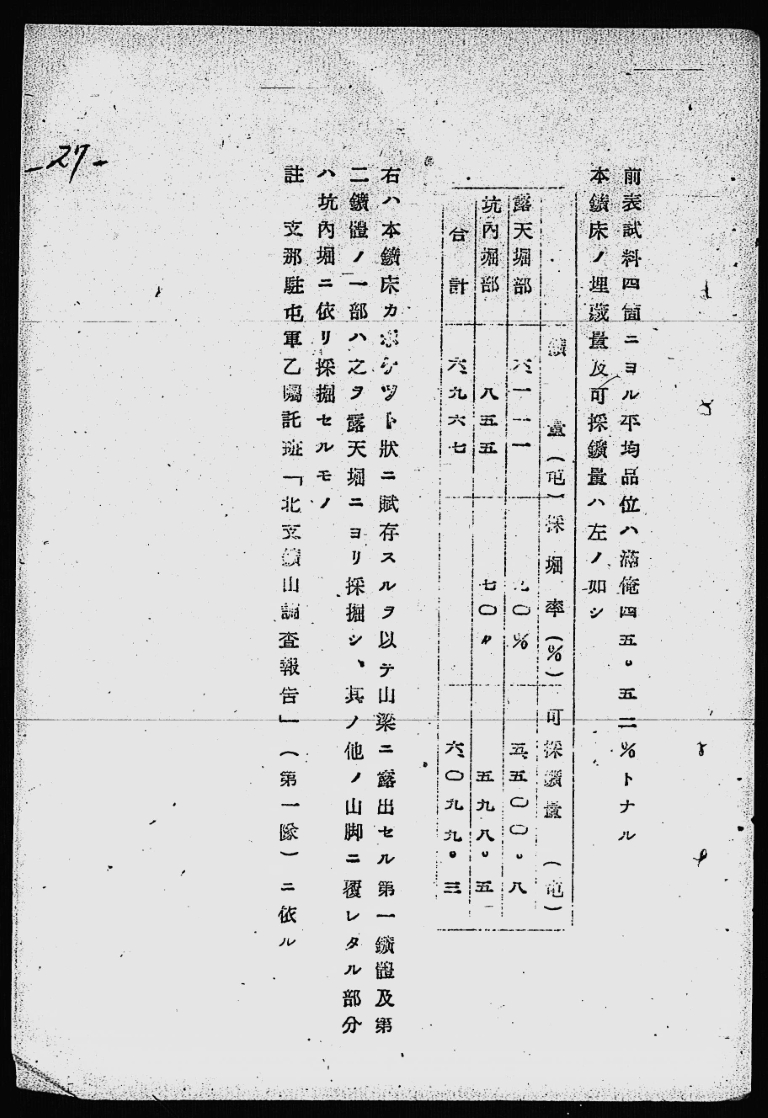 前表試料四箇ニヨル平均品位ハ滿俺四五。五二%トナル
本鑛床ノ埋藏量及可採鑛量ハ左ノ如シ
鑛量(屯) 採堀率(%) 可採鑛量(屯)
露天堀部 六、一一一 九〇% 五、五〇〇。八
坑內堀部 八五五 七〇〃 五九八。五
合計 六、九六七 六、〇九九。三
右ハ本鑛床カポケット狀ニ賦存スルヲ以テ山梁ニ露出セル第一鑛體及第
二鑛體ノ一部ハ之ヲ露天堀ニヨリ採掘シ、其ノ他ノ山脚ニ覆レタル部分
ハ坑內堀ニ依リ採掘セルモノ
註 支那駐屯軍乙囑託班「北支鑛山調査報告」(第一隊)ニ依ル
-27-